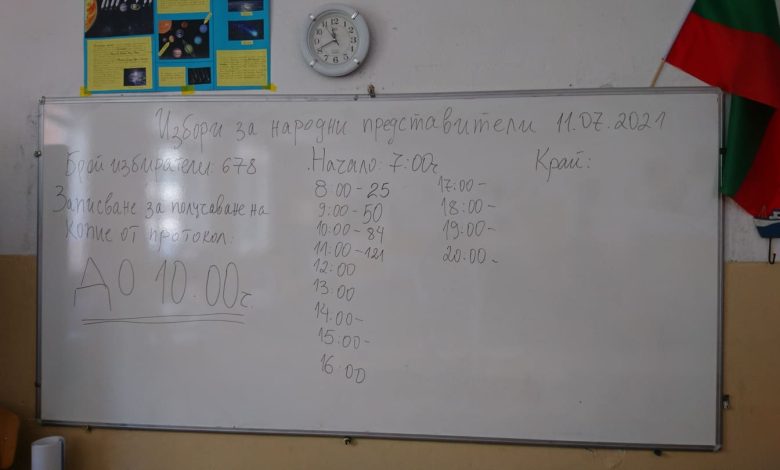 Избори за народни представители 11.07.2021
Брой избиратели: 678
Записване за получаване на
копие от протокол:
ДО 10.00ч.
Начало: 7:00ч
8:00-25
9:00-50
10:00-84
11:00-121
12:00
13:00
14:00-
15:00-
16:00
17:00-
18:00-
19:00-
20:00-
Край: